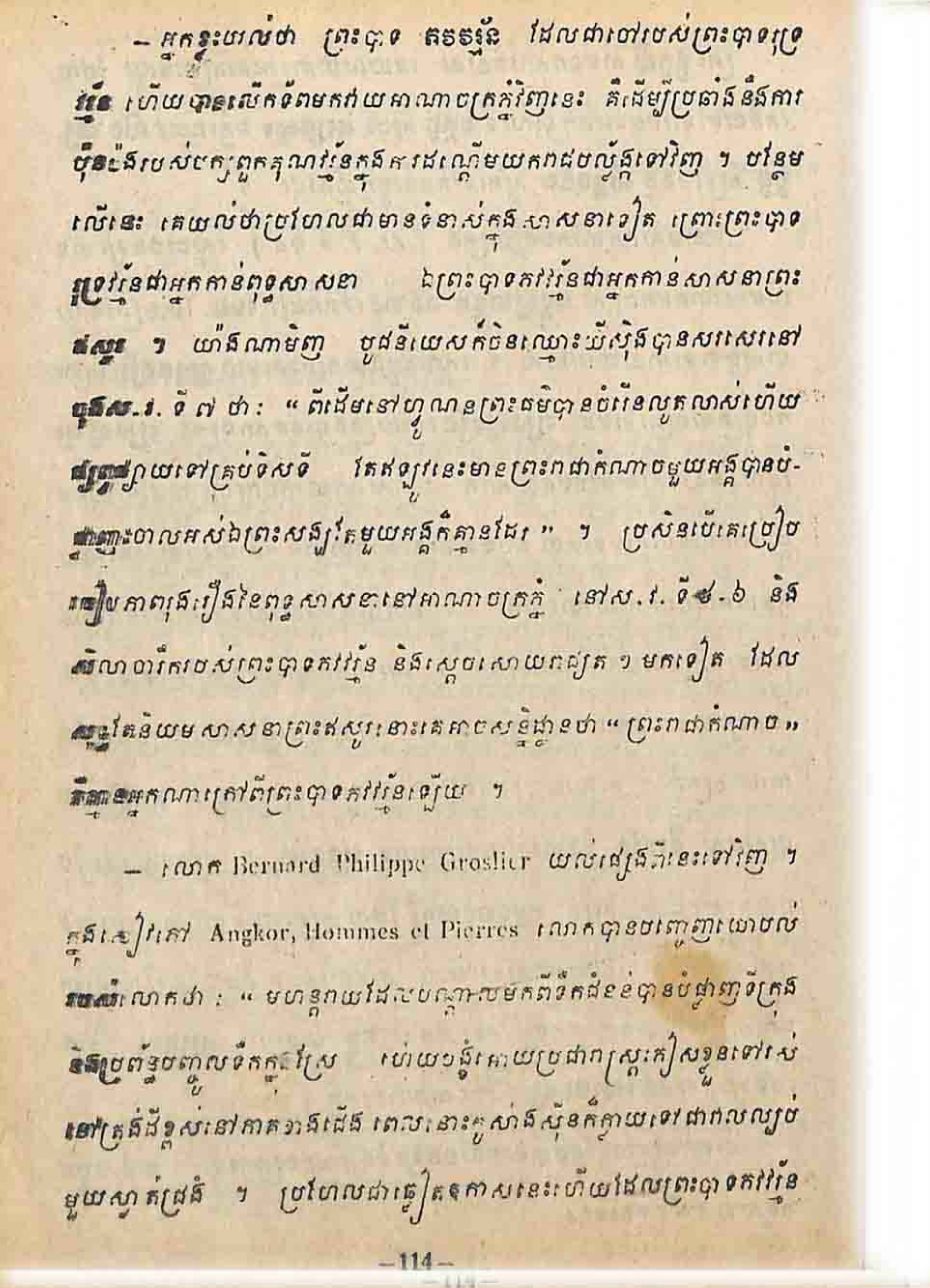 – អ្នកខ្លះយល់ថា ព្រះបាទ ភវវរ្ម័ន ដែលជាចៅរបស់ព្រះបាទរុទ្រ
វរ្ម័ន ហើយបានលើកទ័ពមកវាយអាណាចក្រភ្នំវិញនេះ គឺដើម្បីប្រឆាំងនឹងការ
ប៉ុនប៉ងរបស់បក្សពួកគុណវរ្ម័នក្នុងការដណ្ដើមយករាជបល្ល័ង្កទៅវិញ ។ បន្ថែម
លើនេះ គេយល់ថាប្រហែលជាមានទំនាស់ក្នុងសាសនាទៀត ព្រោះព្រះបាទ
រុទ្រវរ្ម័នជាអ្នកកាន់ពុទ្ធសាសនា ឯព្រះបាទភវវរ្ម័នជាអ្នកកាន់សាសនាព្រះ
ឥសូរ ។ យ៉ាងណាមិញ បូជនីយេសក៍ចិនឈ្មោះយីស៊ិងបានសរសេរនៅ
ចុងស.វ. ទី ៧ ថា : “ ពីដើមនៅហ្វូណនព្រះធម៌បានចំរើនលូតលាស់ហើយ
ផ្សព្វផ្សាយទៅគ្រប់ទិសទី តែឥឡូវនេះមានព្រះរាជាកំណាចមួយអង្គបានបំ-
ផ្លាញចោលអស់ឯព្រះសង្ឃតែមួយអង្គក៏គ្មានដែរ ” ។ ប្រសិនបើគេប្រៀប
ធៀបភាពរុងរឿងនៃពុទ្ធសាសនានៅអាណាចក្រភ្នំ នៅស.វ. ទី ៥-៦ និង
សិលាចារឹករបស់ព្រះបាទភវវរ្ម័ន និងស្ដេចសោយរាជ្យត ៗ មកទៀត ដែល
សុទ្ធតែនិយមសាសនាព្រះឥសូរនោះគេអាចសន្និដ្ឋានថា “ ព្រះរាជាកំណាច ”
គឺគ្មានអ្នកណាក្រៅពីព្រះបាទភវវរ្ម័នឡើយ ។
– លោក Bernard Philippe Groslier យល់ផ្សេងពីនេះទៅវិញ ។
ក្នុងសៀវភៅ Angkor, Hommes et Pierres លោកបានបញ្ចេញយោបល់
របស់លោកថា : “ មហន្តរាយដែលបណ្ដាលមកពីទឹកជំនន់បានបំផ្លាញទីក្រុង
និងប្រព័ន្ធបញ្ចូលទឹកក្នុងស្រែ ហើយបង្ខំអោយប្រជារាស្ត្រភៀសខ្លួនទៅរស់
នៅត្រង់ដីខ្ពស់នៅភាគខាងជើង ពេលនោះគូសាំងស៊ីនក៏ក្លាយទៅជាវាលល្បប់
មួយស្ងាត់ជ្រងំ ។ ប្រហែលជាឆ្លៀតឱកាសនេះហើយដែលព្រះបាទភវវរ្ម័ន
–114–